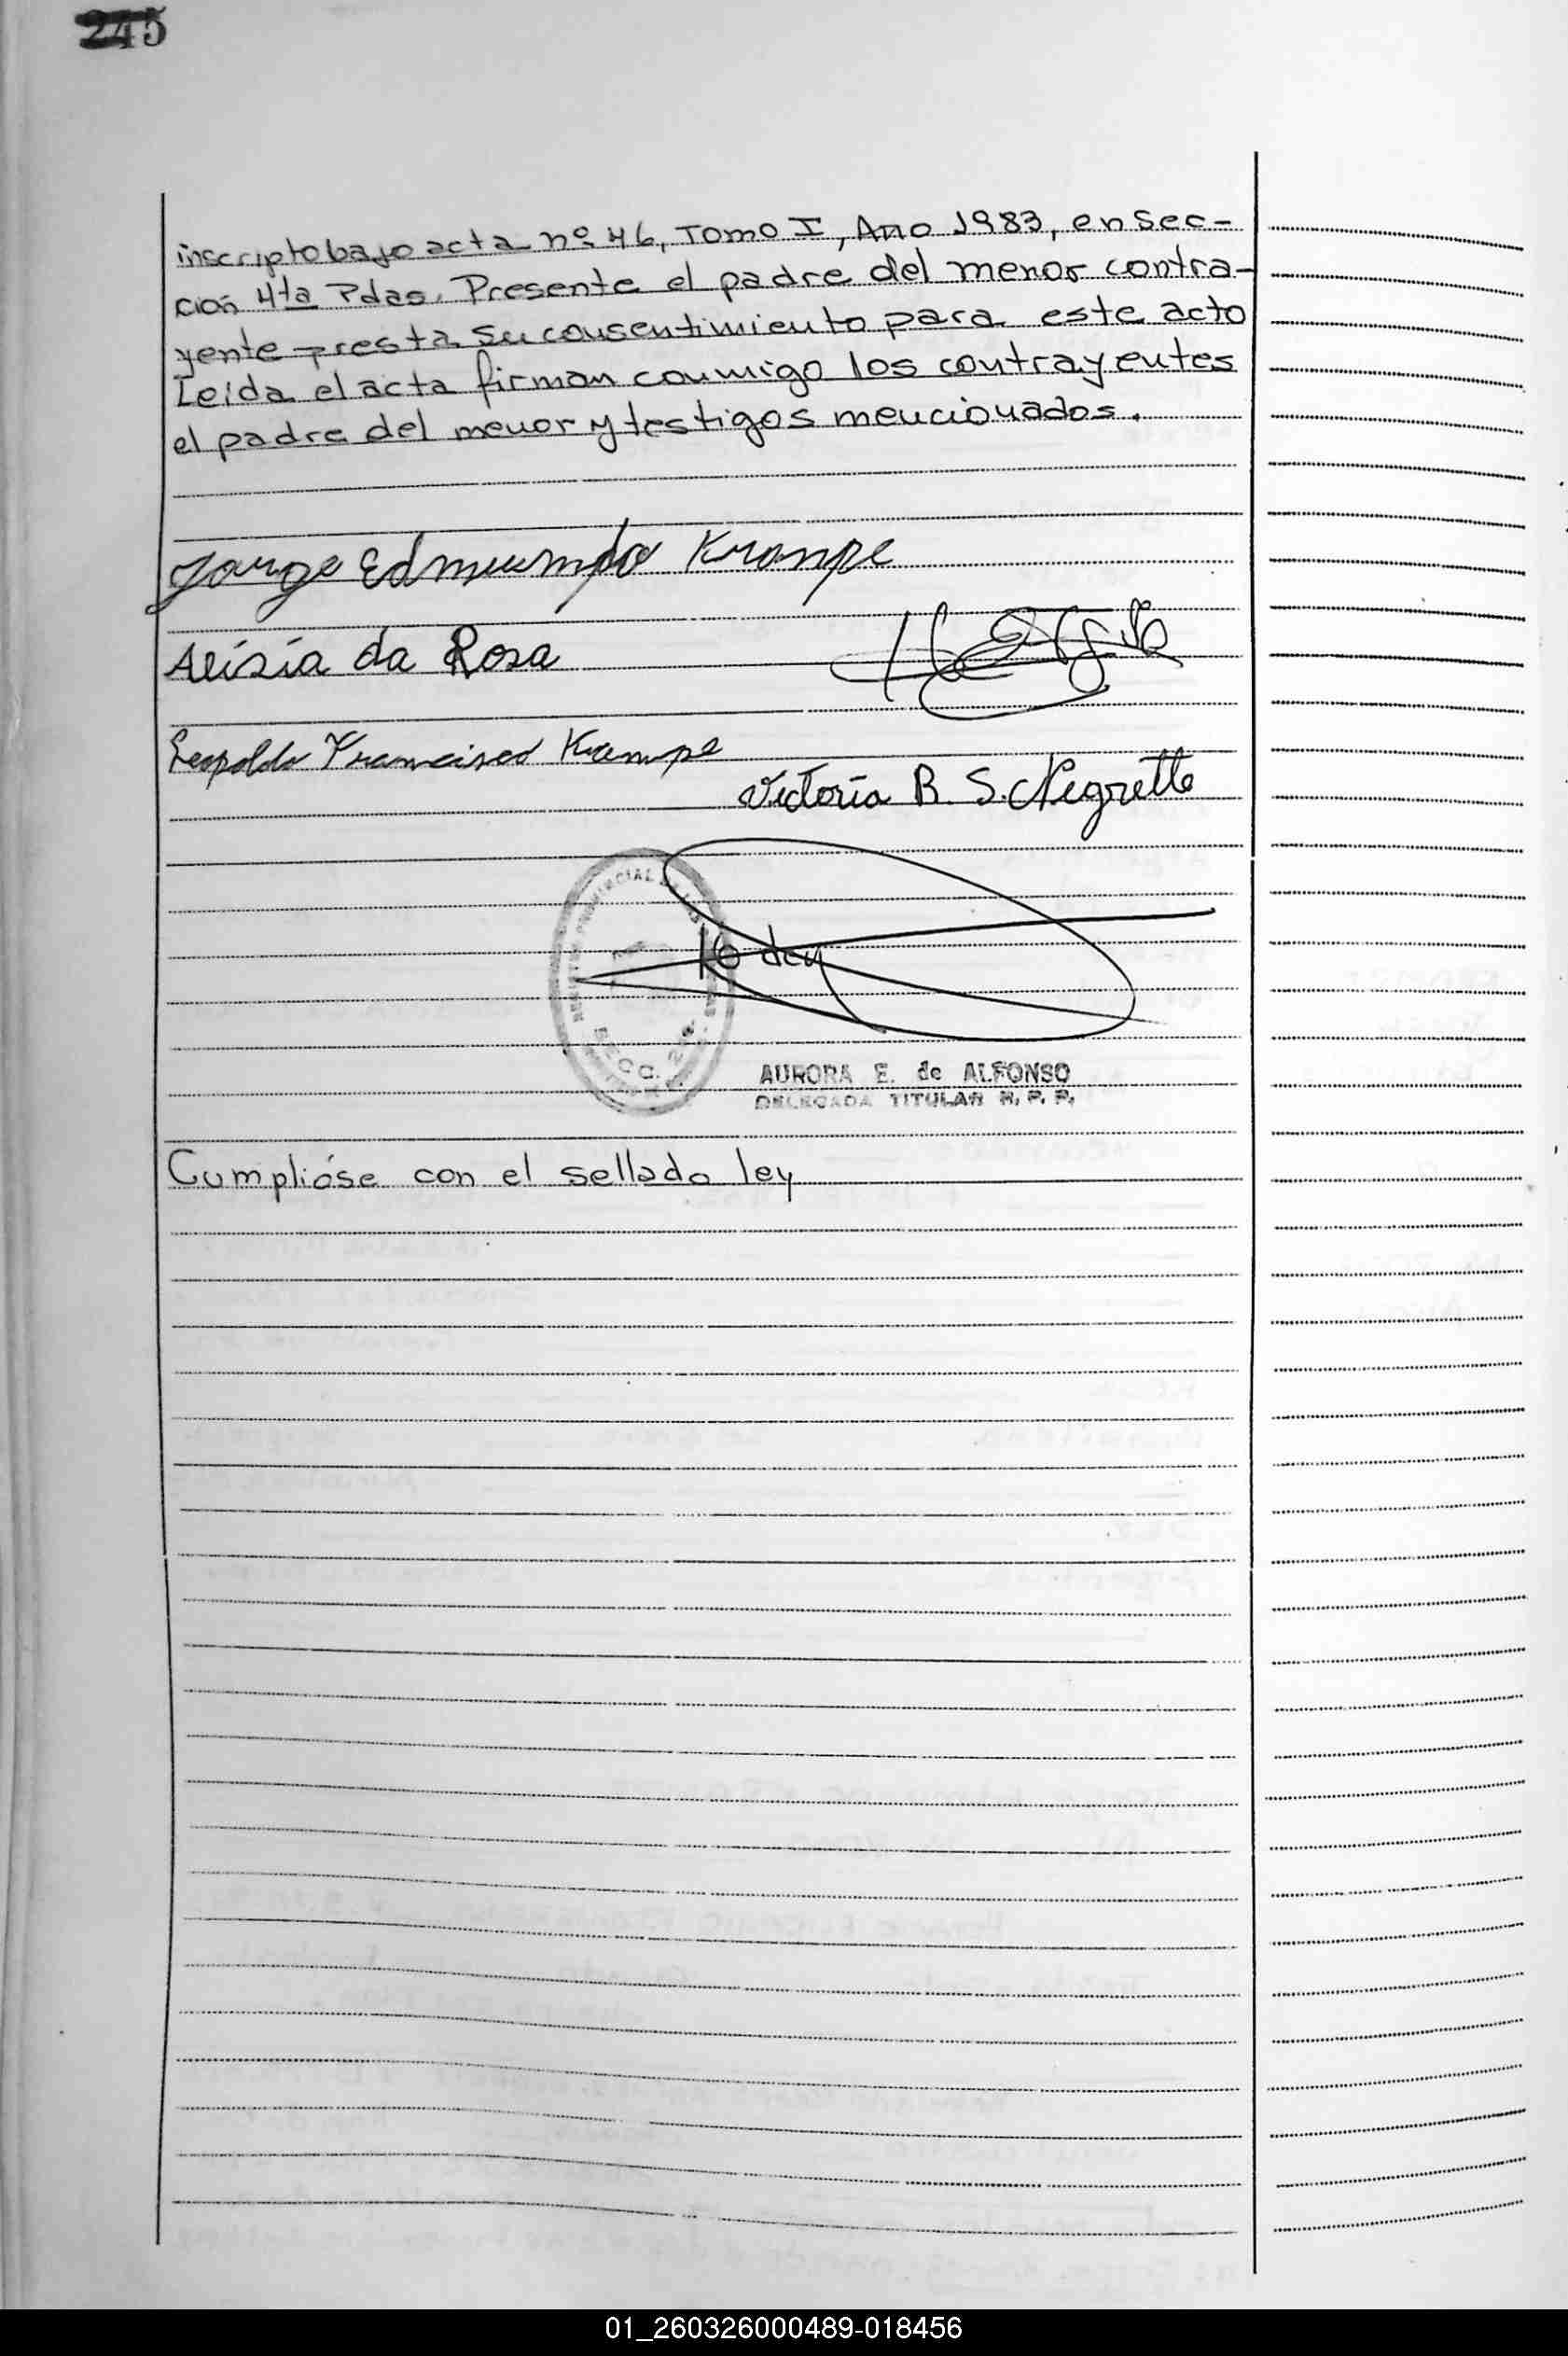 245
inscripto bajo acta nº 46, Tomo I, Año 1983, en Sec-
ción 4ta Pdas. Presente el padre del menor contra-
yente presta su consentimiento para este acto
Leida el acta firman conmigo los contrayentes
el padre del menor y testigos mencionados.
Jorge Edmundo Krampe
Alisia da Rosa
Leopoldo Francisco Krampe
Victoria B. S. Negrette
REGISTRO PROVINCIAL DE LAS
SECC. 2da.
AURORA E. de ALFONSO
DELEGADA TITULAR R. P. P.
Cumplióse con el sellado ley
01_260326000489-018456